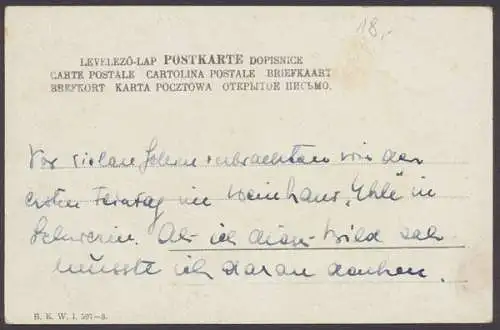 18,-
LEVELEZŐ-LAP POSTKARTE DOPISNICE
CARTE POSTALE CARTOLINA POSTALE BRIEFKAART
BREFKORT KARTA POCZTOWA ОТКРЫТОЕ ПИСЬМО.
Vor vielen Jahren verbrachten wir den
ersten Feiertag im Weinhaus „Uhle" in
Schwerin. Als ich dieses Bild sah
musste ich daran denken.
B. K. W. I. 597-8.